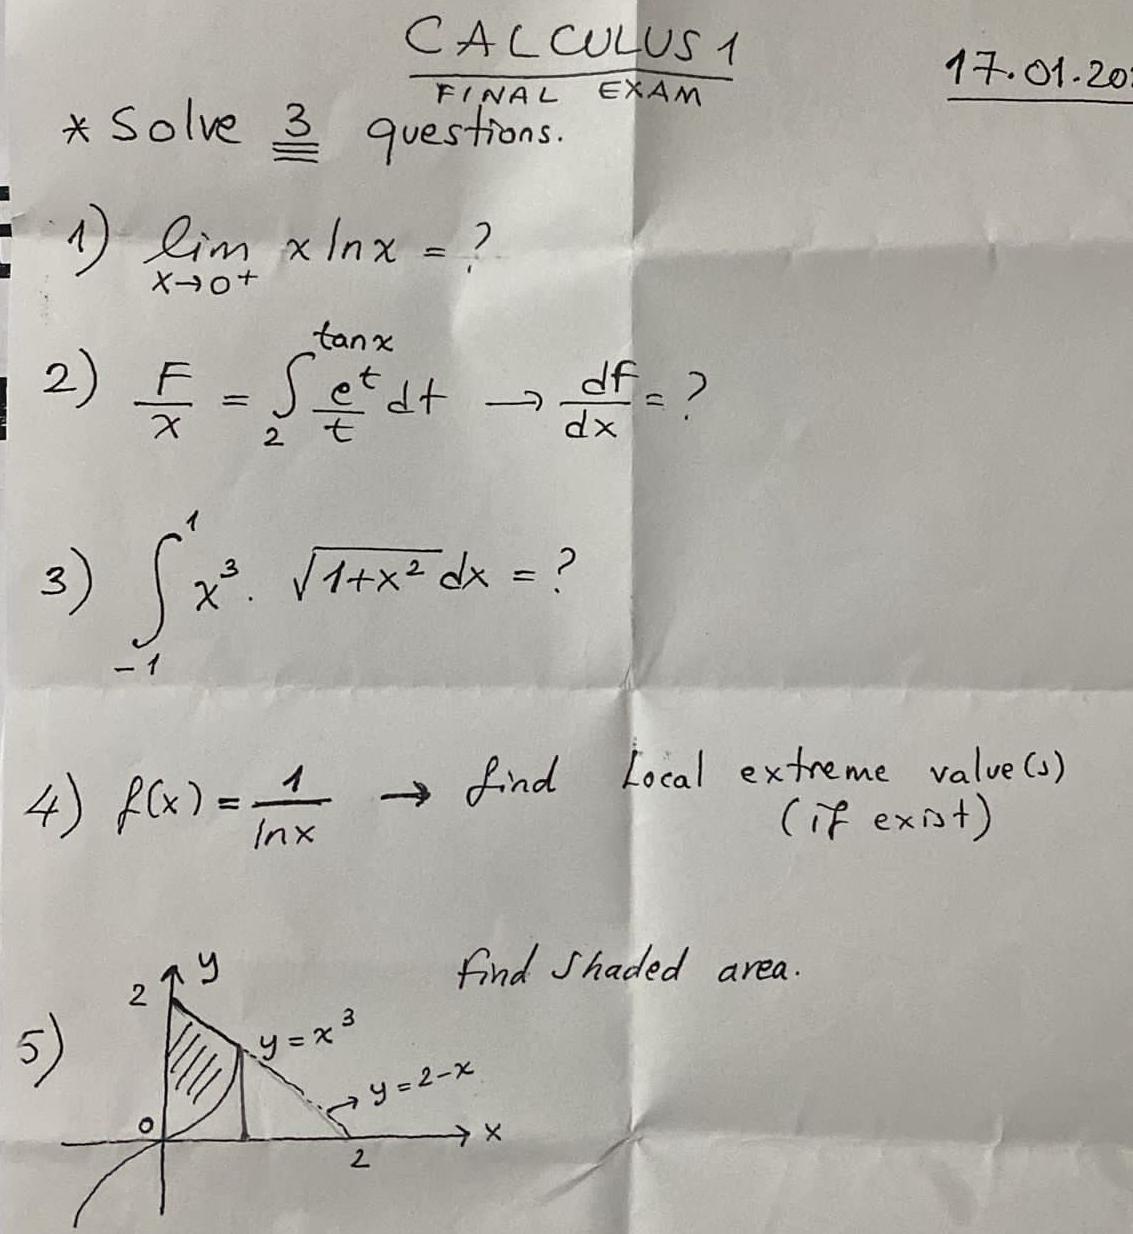 CALCULUS 1
FINAL EXAM
17.01.20
* Solve 3 questions.
1) lim x ln x = ?
x→0+
2) F/x = ∫₂^tanx e^t/t dt → df/dx = ?
3) ∫₋₁^1 x³. √1+x² dx = ?
4) f(x) = 1/lnx → find Local extreme value(s)
(if exist)
5) find shaded area.
y
2
y = x³
y = 2-x
0
x
2